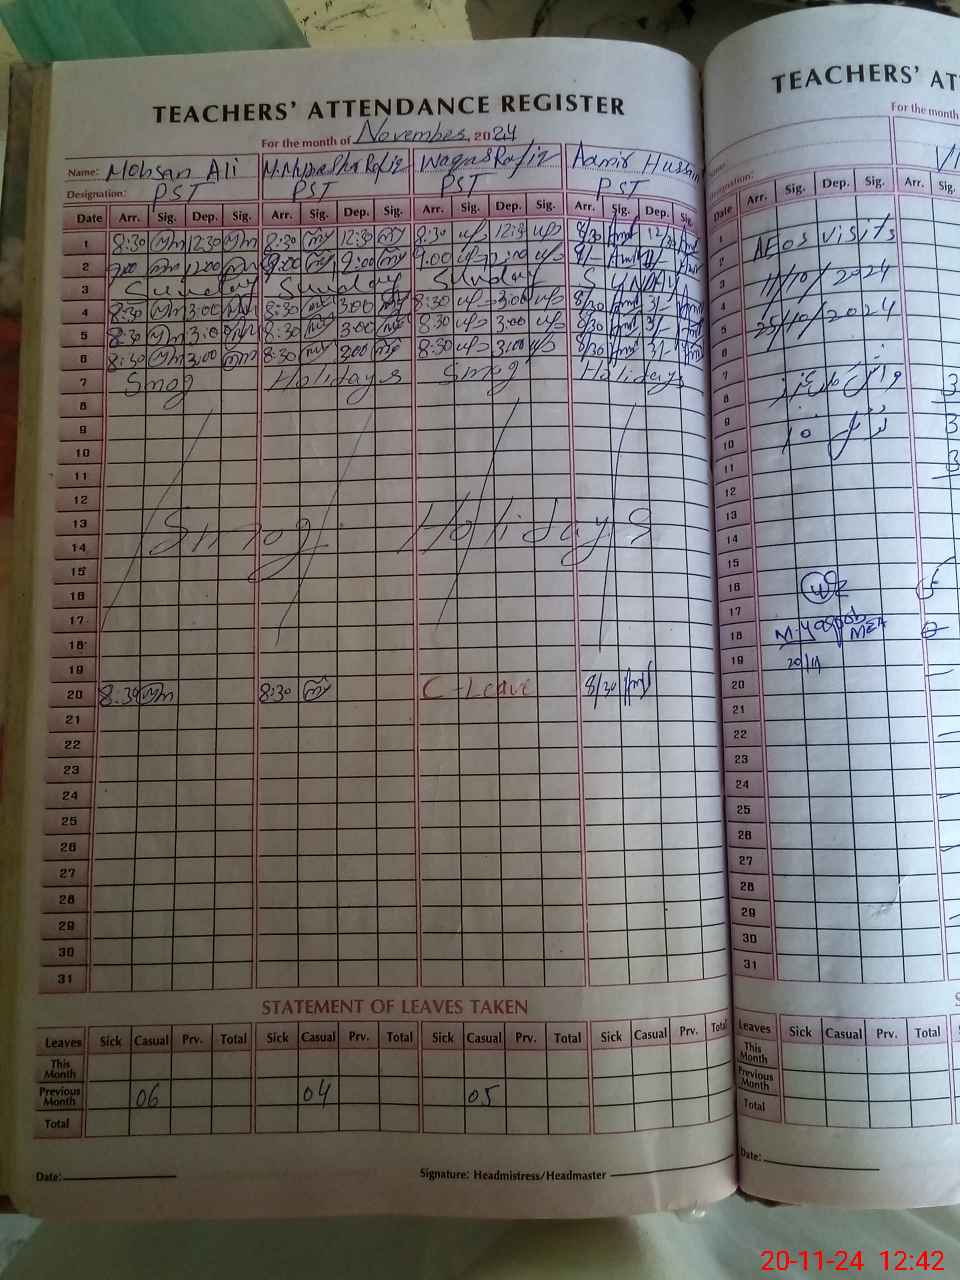 TEACHERS' ATTENDANCE REGISTER
For the month of November, 2024
Name: Mohsan Ali Waqas Rafiz Aamir Hussain
Designation: PST PST PST PST
Date Arr. Sig. Dep. Sig. Arr. Sig. Dep. Sig. Arr. Sig. Dep. Sig. Arr. Sig. Dep. Sig.
1 8:30 12:30 8:30 12:30 8:30 12:30 8/30 12/30
2 9:00 12:00 9:00 12:00 9:00 12:00 9/-
3 Sunday Sunday Sunday SUNDAY
4 8:30 3:00 8:30 3:00 8:30 3:00 8/30 3/-
5 8:30 3:00 8:30 3:00 8:30 3:00 8/30 3/-
6 8:30 3:00 8:30 3:00 8:30 3:00 8/30 3/-
7 Smog Holidays Smog Holidays
8
9
10
11
12
13 Smog Holidays
14
15
16
17
18
19
20 8:30 8:30 C-Leave 8/30
21
22
23
24
25
26
27
28
29
30
31
STATEMENT OF LEAVES TAKEN
Leaves Sick Casual Prv. Total Sick Casual Prv. Total Sick Casual Prv. Total Sick Casual Prv. Total
This Month
Previous Month 06 04 05
Total
Date: Signature: Headmistress/Headmaster
TEACHERS' AT
For the month
Date Arr. Sig. Dep. Sig. Arr. Sig.
1 AEOs visits
2
3 11/10/2024
4
5 25/10/2024
6
7
8
9
10
11
12
13
14
15
16
17
18 M. Yaqoob MEA
19 20/11
20
21
22
23
24
25
26
27
28
29
30
31
Leaves Sick Casual Prv. Total
This Month
Previous Month
Total
Date:
20-11-24 12:42